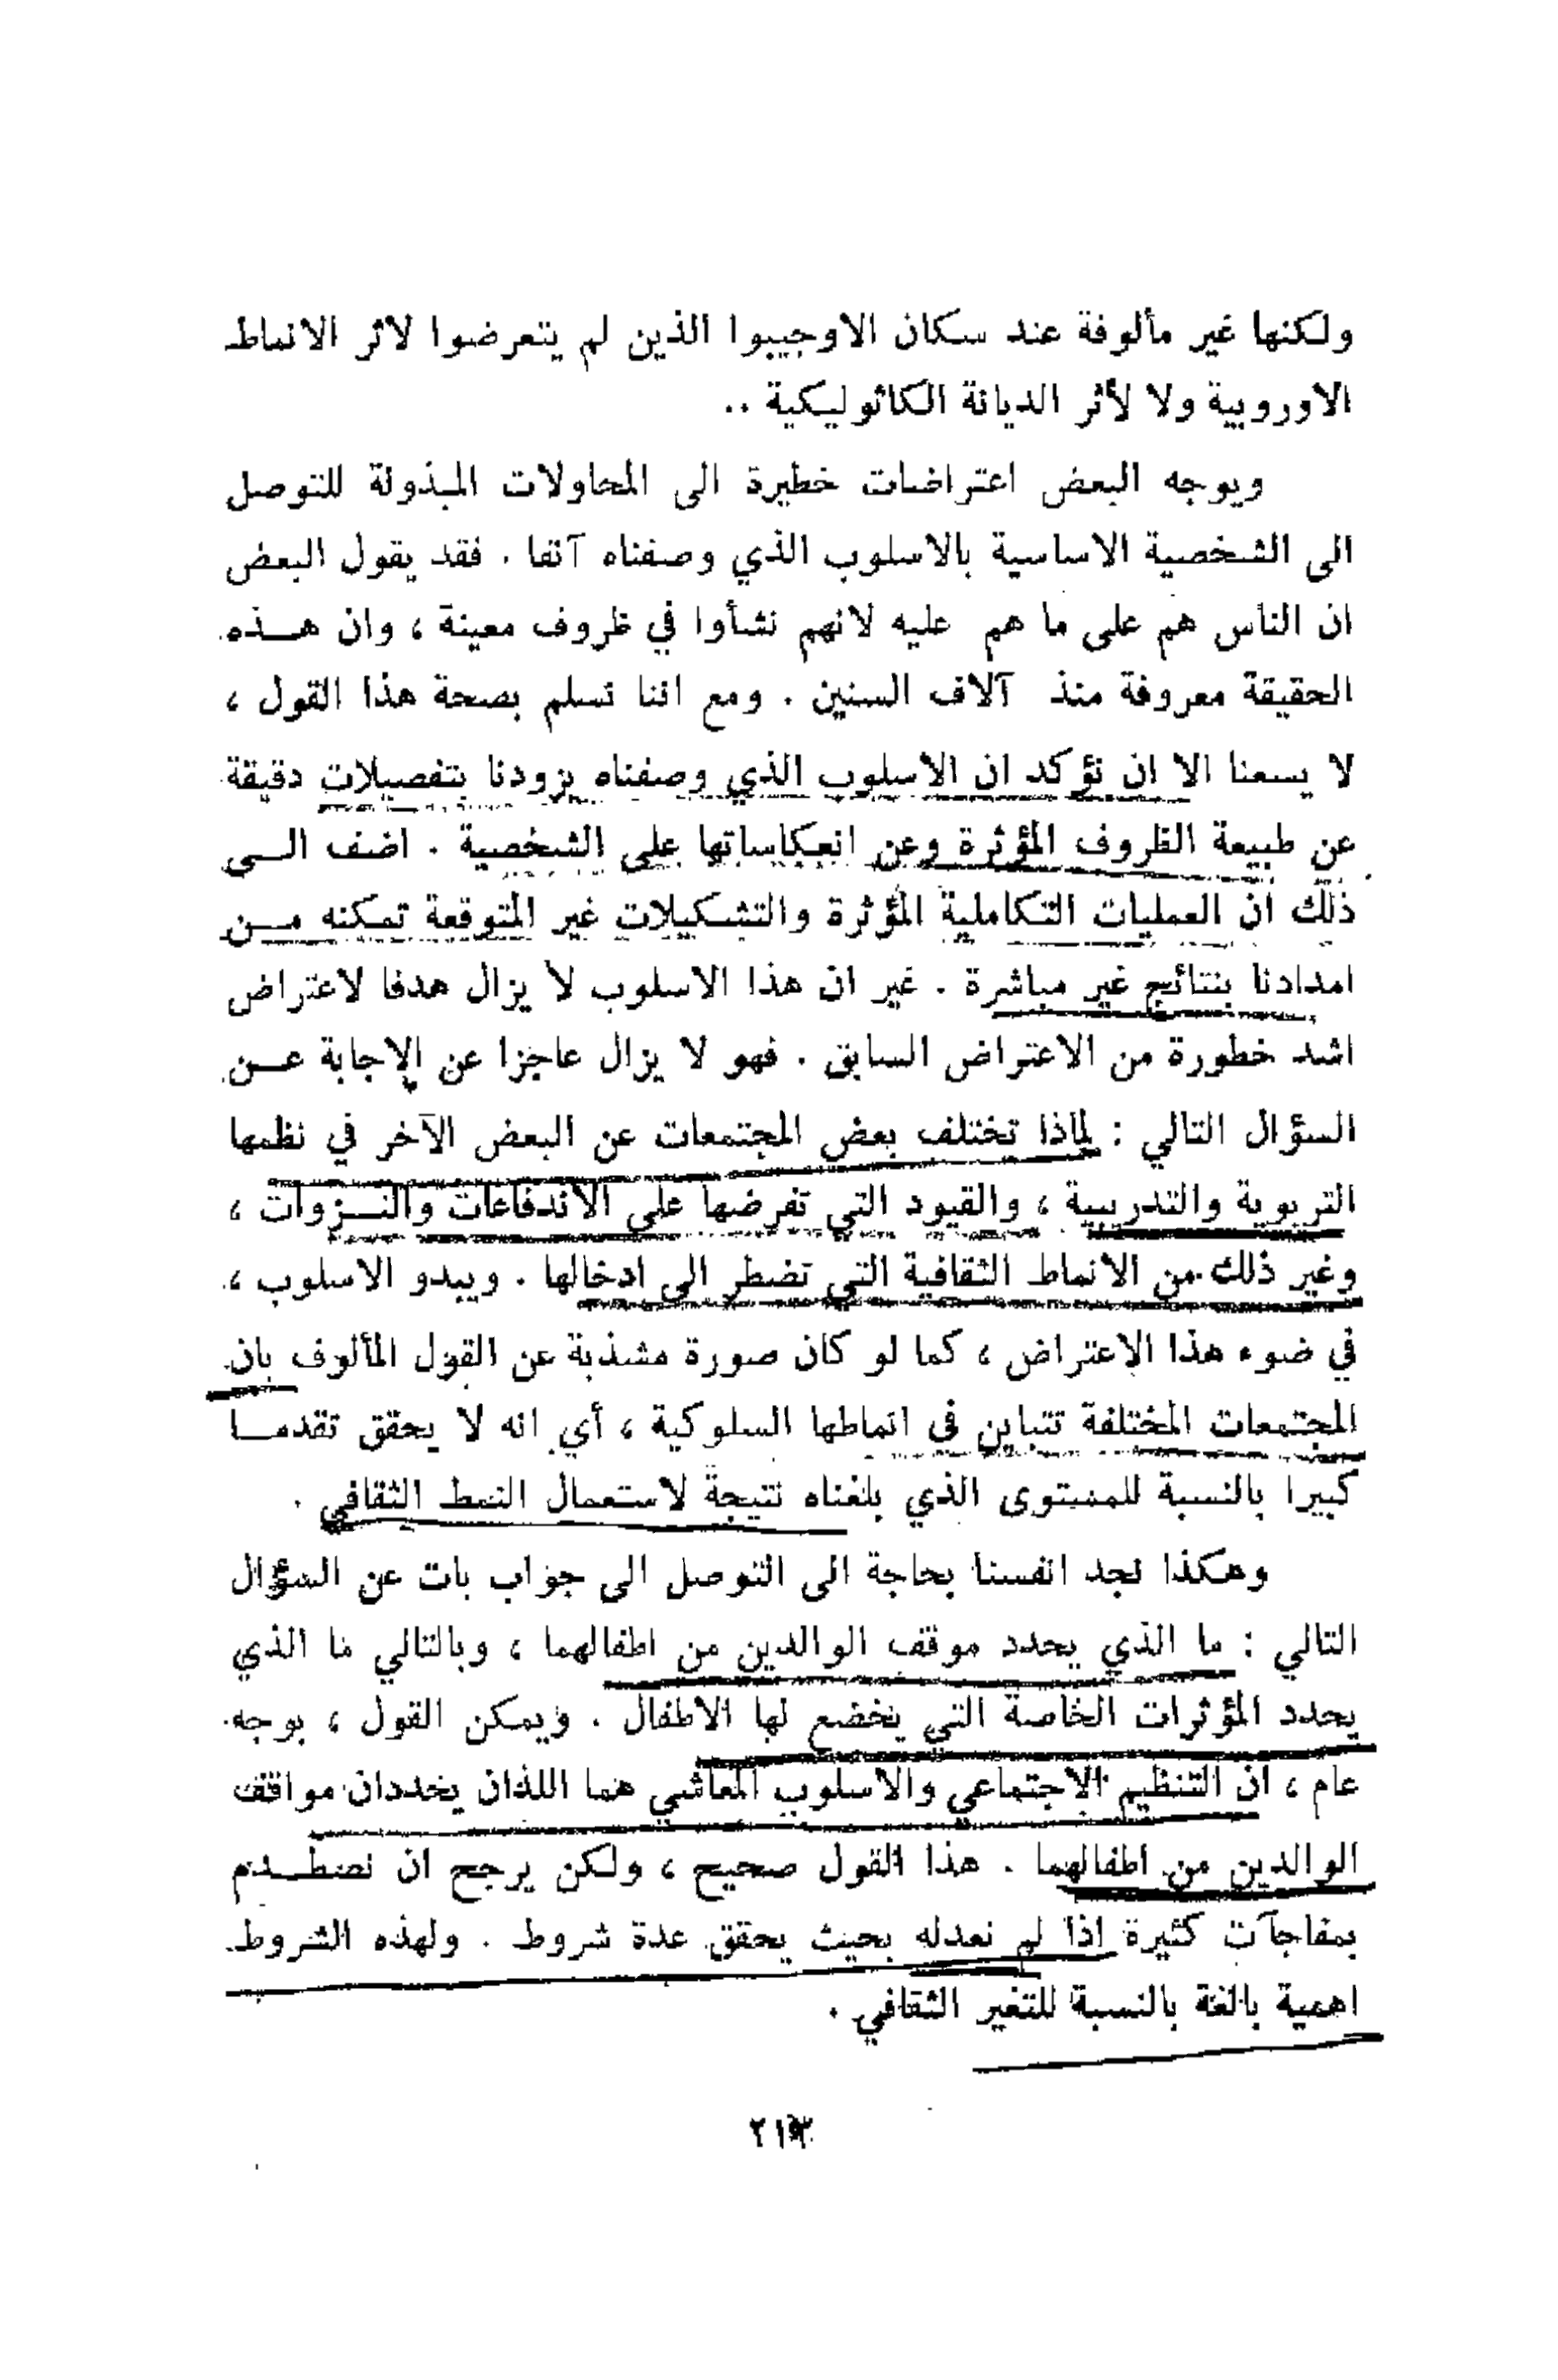 ولكنها غير مألوفة عند سكان الاوجيبوا الذين لم يتعرضوا لاثر الانماط
الاوروبية ولا لأثر الديانة الكاثوليكية ..
ويوجه البعض اعتراضات خطيرة الى المحاولات المبذولة للتوصل
الى الشخصية الاساسية بالاسلوب الذي وصفناه آنفا . فقد يقول البعض
ان الناس هم على ما هم عليه لانهم نشأوا في ظروف معينة ، وان هـــذه
الحقيقة معروفة منذ آلاف السنين . ومع اننا نسلم بصحة هذا القول ،
لا يسعنا الا ان نؤكد ان الاسلوب الذي وصفناه يزودنا بتفصيلات دقيقة
عن طبيعة الظروف المؤثرة وعن انعكاساتها على الشخصية . اضف الـــى
ذلك ان العمليات التكاملية المؤثرة والتشكيلات غير المتوقعة تمكنه مــن
امدادنا بنتائج غير مباشرة . غير ان هذا الاسلوب لا يزال هدفا لاعتراض
اشد خطورة من الاعتراض السابق . فهو لا يزال عاجزا عن الإجابة عــن
السؤال التالي : لماذا تختلف بعض المجتمعات عن البعض الآخر في نظمها
التربوية والتدريبية ، والقيود التي تفرضها على الاندفاعات والنـــزوات ،
وغير ذلك من الانماط الثقافية التي تضطر الى ادخالها . ويبدو الاسلوب ،
في ضوء هذا الاعتراض ، كما لو كان صورة مشذبة عن القول المألوف بان
المجتمعات المختلفة تتباين في انماطها السلوكية ، أي انه لا يحقق تقدمــا
كبيرا بالنسبة للمستوى الذي بلغناه نتيجة لاستعمال النمط الثقافي .
وهكذا نجد انفسنا بحاجة الى التوصل الى جواب بات عن السؤال
التالي : ما الذي يحدد موقف الوالدين من اطفالهما ، وبالتالي ما الذي
يحدد المؤثرات الخاصة التي يخضع لها الاطفال . ويمكن القول ، بوجه
عام ، ان التنظيم الاجتماعي والاسلوب المعاشي هما اللذان يحددان مواقف
الوالدين من اطفالهما . هذا القول صحيح ، ولكن يرجح ان نصطــدم
بمفاجآت كثيرة اذا لم نعدله بحيث يحقق عدة شروط . ولهذه الشروط
اهمية بالغة بالنسبة للتغير الثقافي .
٢١٣